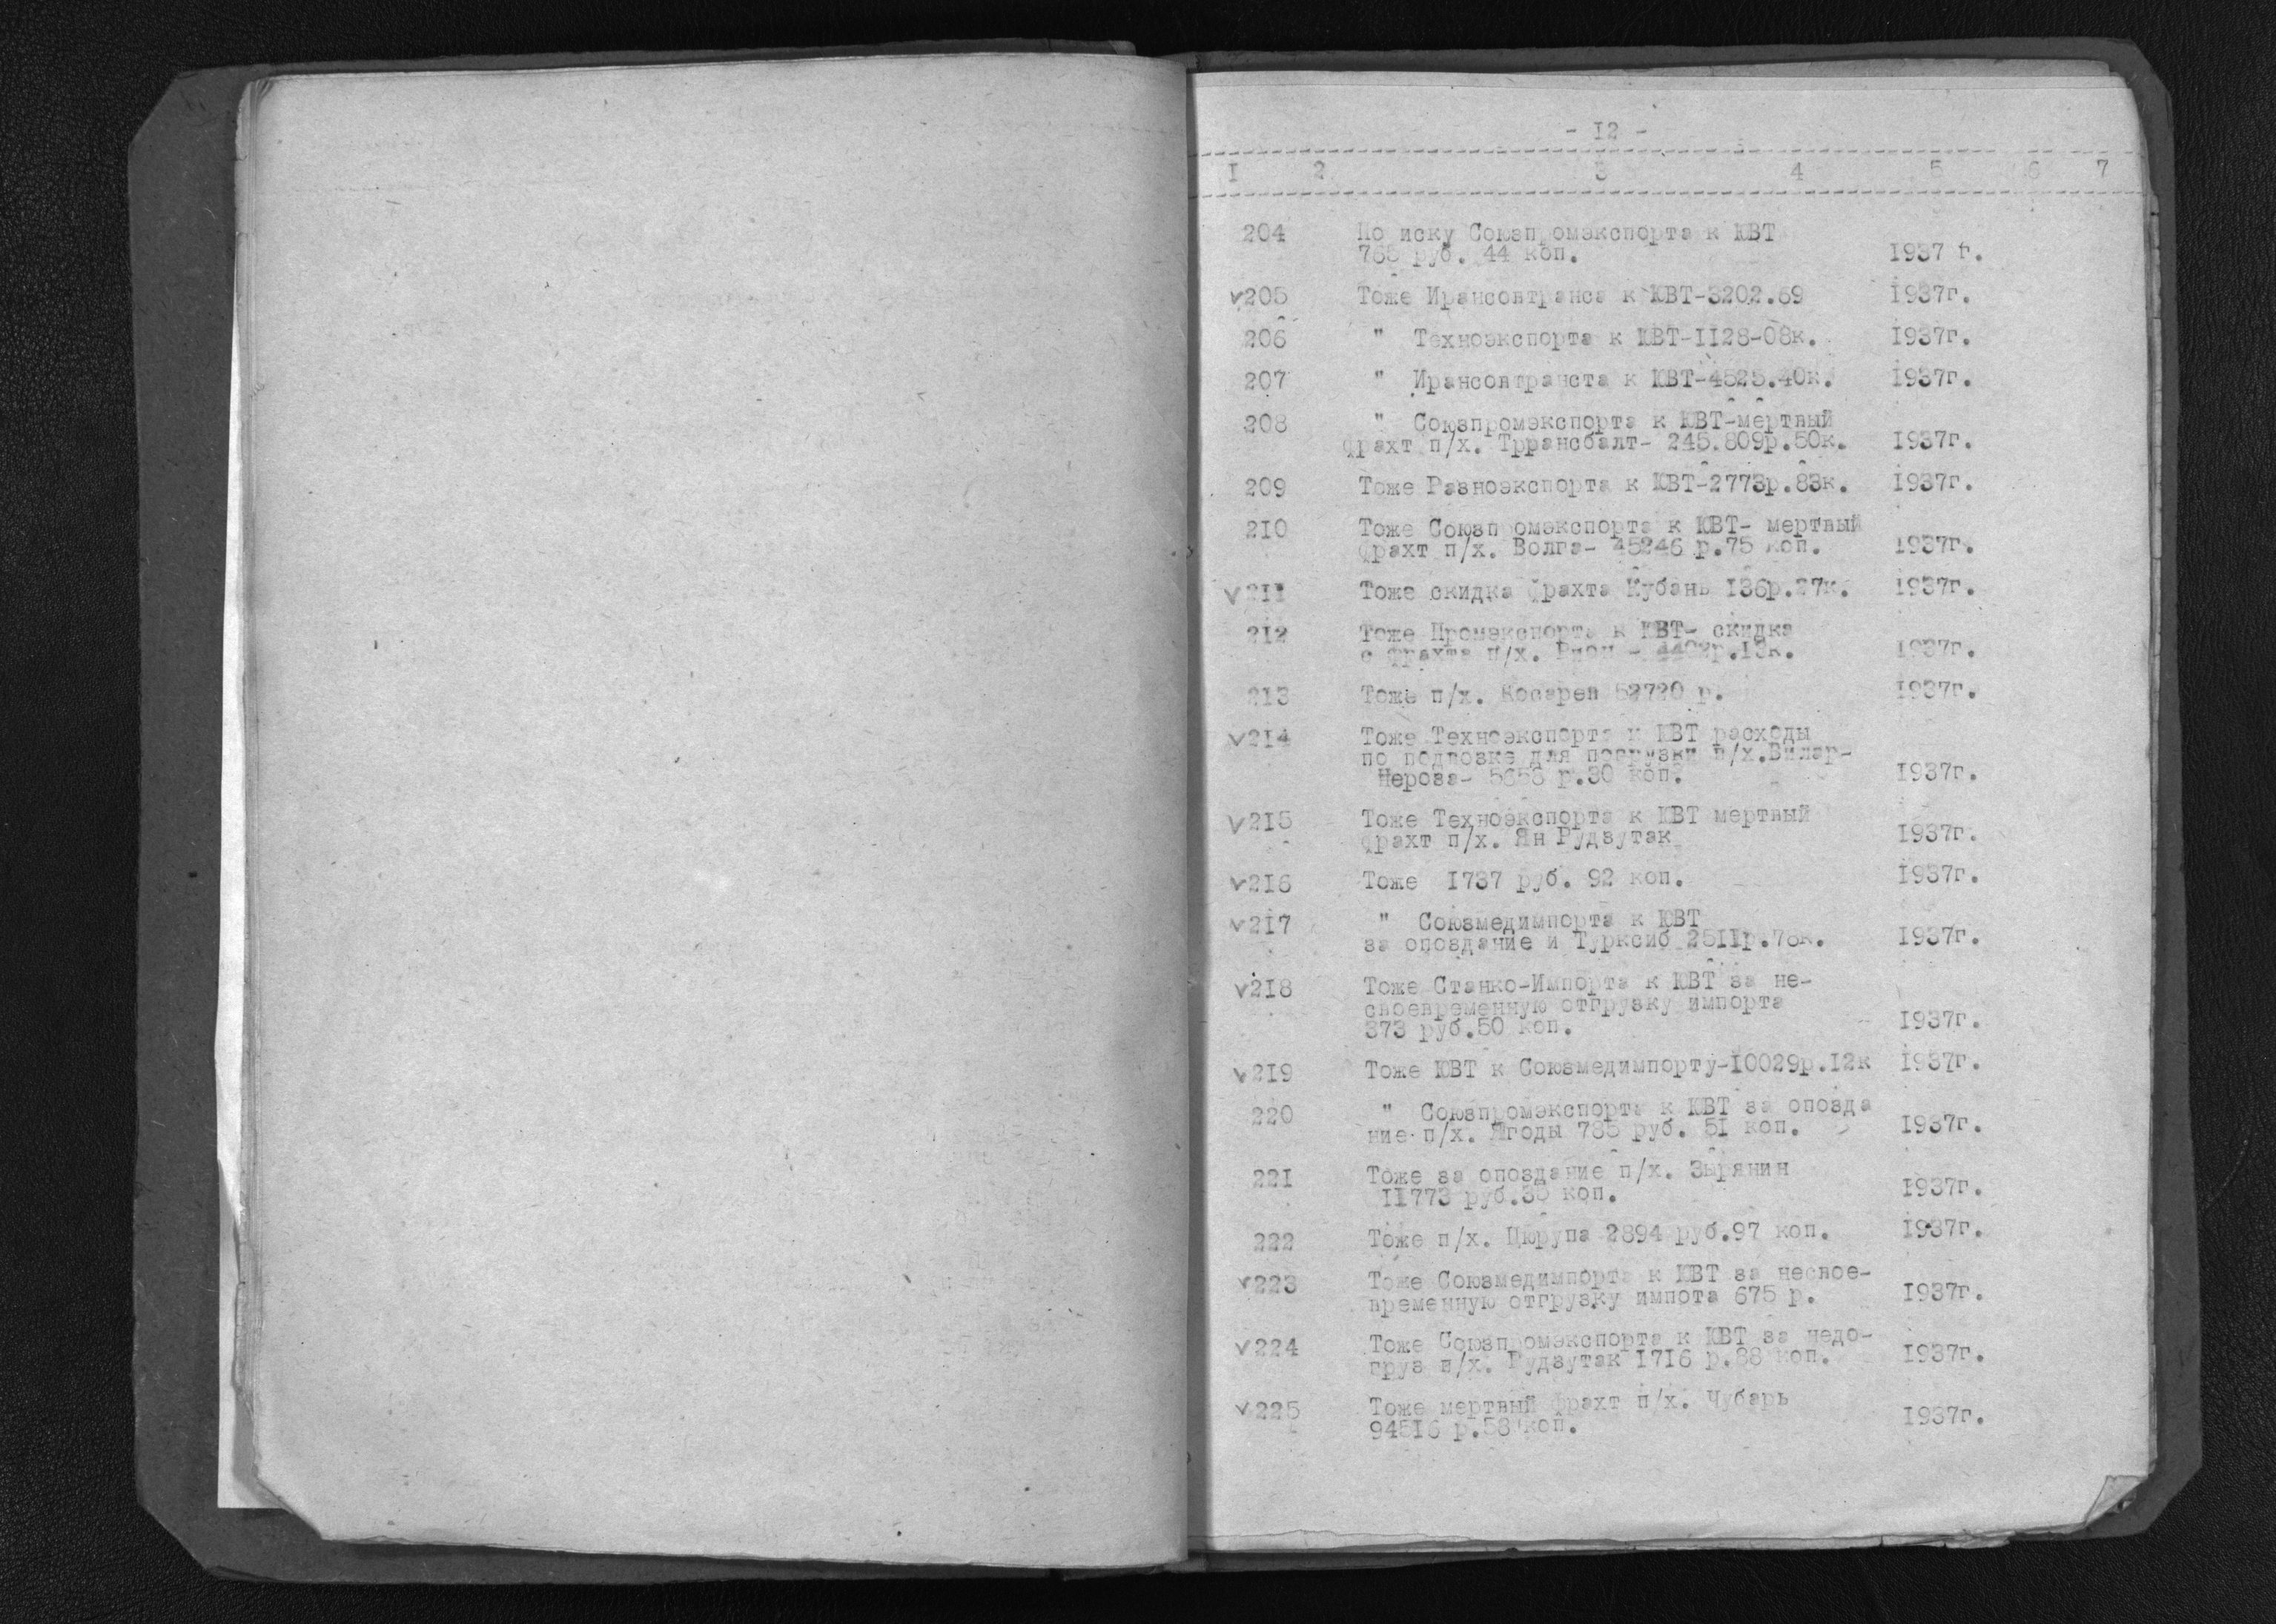 - I2 -
I 2 3 4 5 6 7
204 По иску Союзпромэкспорта к ЮВТ
768 руб. 44 коп. 1937 г.
v205 Тоже Ирансовтранса к ЮВТ-3202.69 1937г.
206 " Техноэкспорта к ЮВТ-II28-08к. 1937г.
207 " Ирансовтранста к ЮВТ-4525.40к. 1937г.
208 " Союзпромэкспорта к ЮВТ-мертвый
фрахт п/х. Тррансбалт- 245.809р.50к. 1937г.
209 Тоже Разноэкспорта к ЮВТ-2773р.83к. 1937г.
2I0 Тоже Союзпромэкспорта к ЮВТ- мертвый
фрахт п/х. Волга- 45246 р.75 коп. 1937г.
v2II Тоже скидка фрахта Кубань I36р.27к. 1937г.
2I2 Тоже Промэкспорта к ЮВТ- скидка
с фрахта п/х. Рион - р.I3к. 1937г.
2I3 Тоже п/х. Косарев 52720 р. 1937г.
v2I4 Тоже Техноэкспорта к ЮВТ расходы
по подвозке для погрузки п/х.Виляр-
Нероза- 5658 р.30 коп. 1937г.
v2I5 Тоже Техноэкспорта к ЮВТ мертвый
фрахт п/х. Ян Рудзутак 1937г.
v2I6 Тоже I737 руб. 92 коп. 1937г.
v2I7 " Союзмедимпорта к ЮВТ
за опоздание и Турксиб 25IIр.78к. 1937г.
v2I8 Тоже Станко-Импорта к ЮВТ за не-
своевременную отгрузку импорта
373 руб.50 коп. 1937г.
v2I9 Тоже ЮВТ к Союзмедимпорту-I0029р.I2к 1937г.
220 " Союзпромэкспорта к ЮВТ за опозда
ние п/х. Ягоды 785 руб. 5I коп. 1937г.
22I Тоже за опоздание п/х. Зырянин
II773 руб.35 коп. 1937г.
222 Тоже п/х. Цюрупа 2894 руб.97 коп. 1937г.
v223 Тоже Союзмедимпорта к ЮВТ за несвое-
временную отгрузку импота 675 р. 1937г.
v224 Тоже Союзпромэкспорта к ЮВТ за недо-
груз п/х. Рудзутак I7I6 р.88 коп. 1937г.
v225 Тоже мертвый фрахт п/х. Чубарь
945I6 р.58 коп. 1937г.